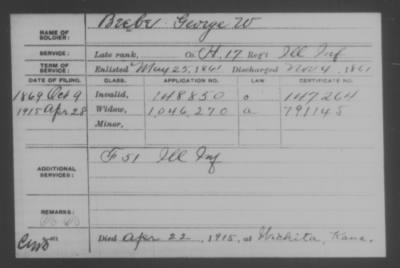 NAME OF SOLDIER: Breby George W
SERVICE: Late rank, Co. H, 17 Reg't Ill Inf
TERM OF SERVICE: Enlisted May 25, 1861 Discharged Nov 4, 1861
DATE OF FILING. CLASS. APPLICATION NO. LAW CERTIFICATE NO.
1869 Oct 9 Invalid, 148850 o 147264
1915 Apr 28 Widow, 1,046,270 a 791145
Minor,
ADDITIONAL SERVICES: F 51 Ill Inf
REMARKS:
Died Apr 22, 1915, at Wichita, Kans.